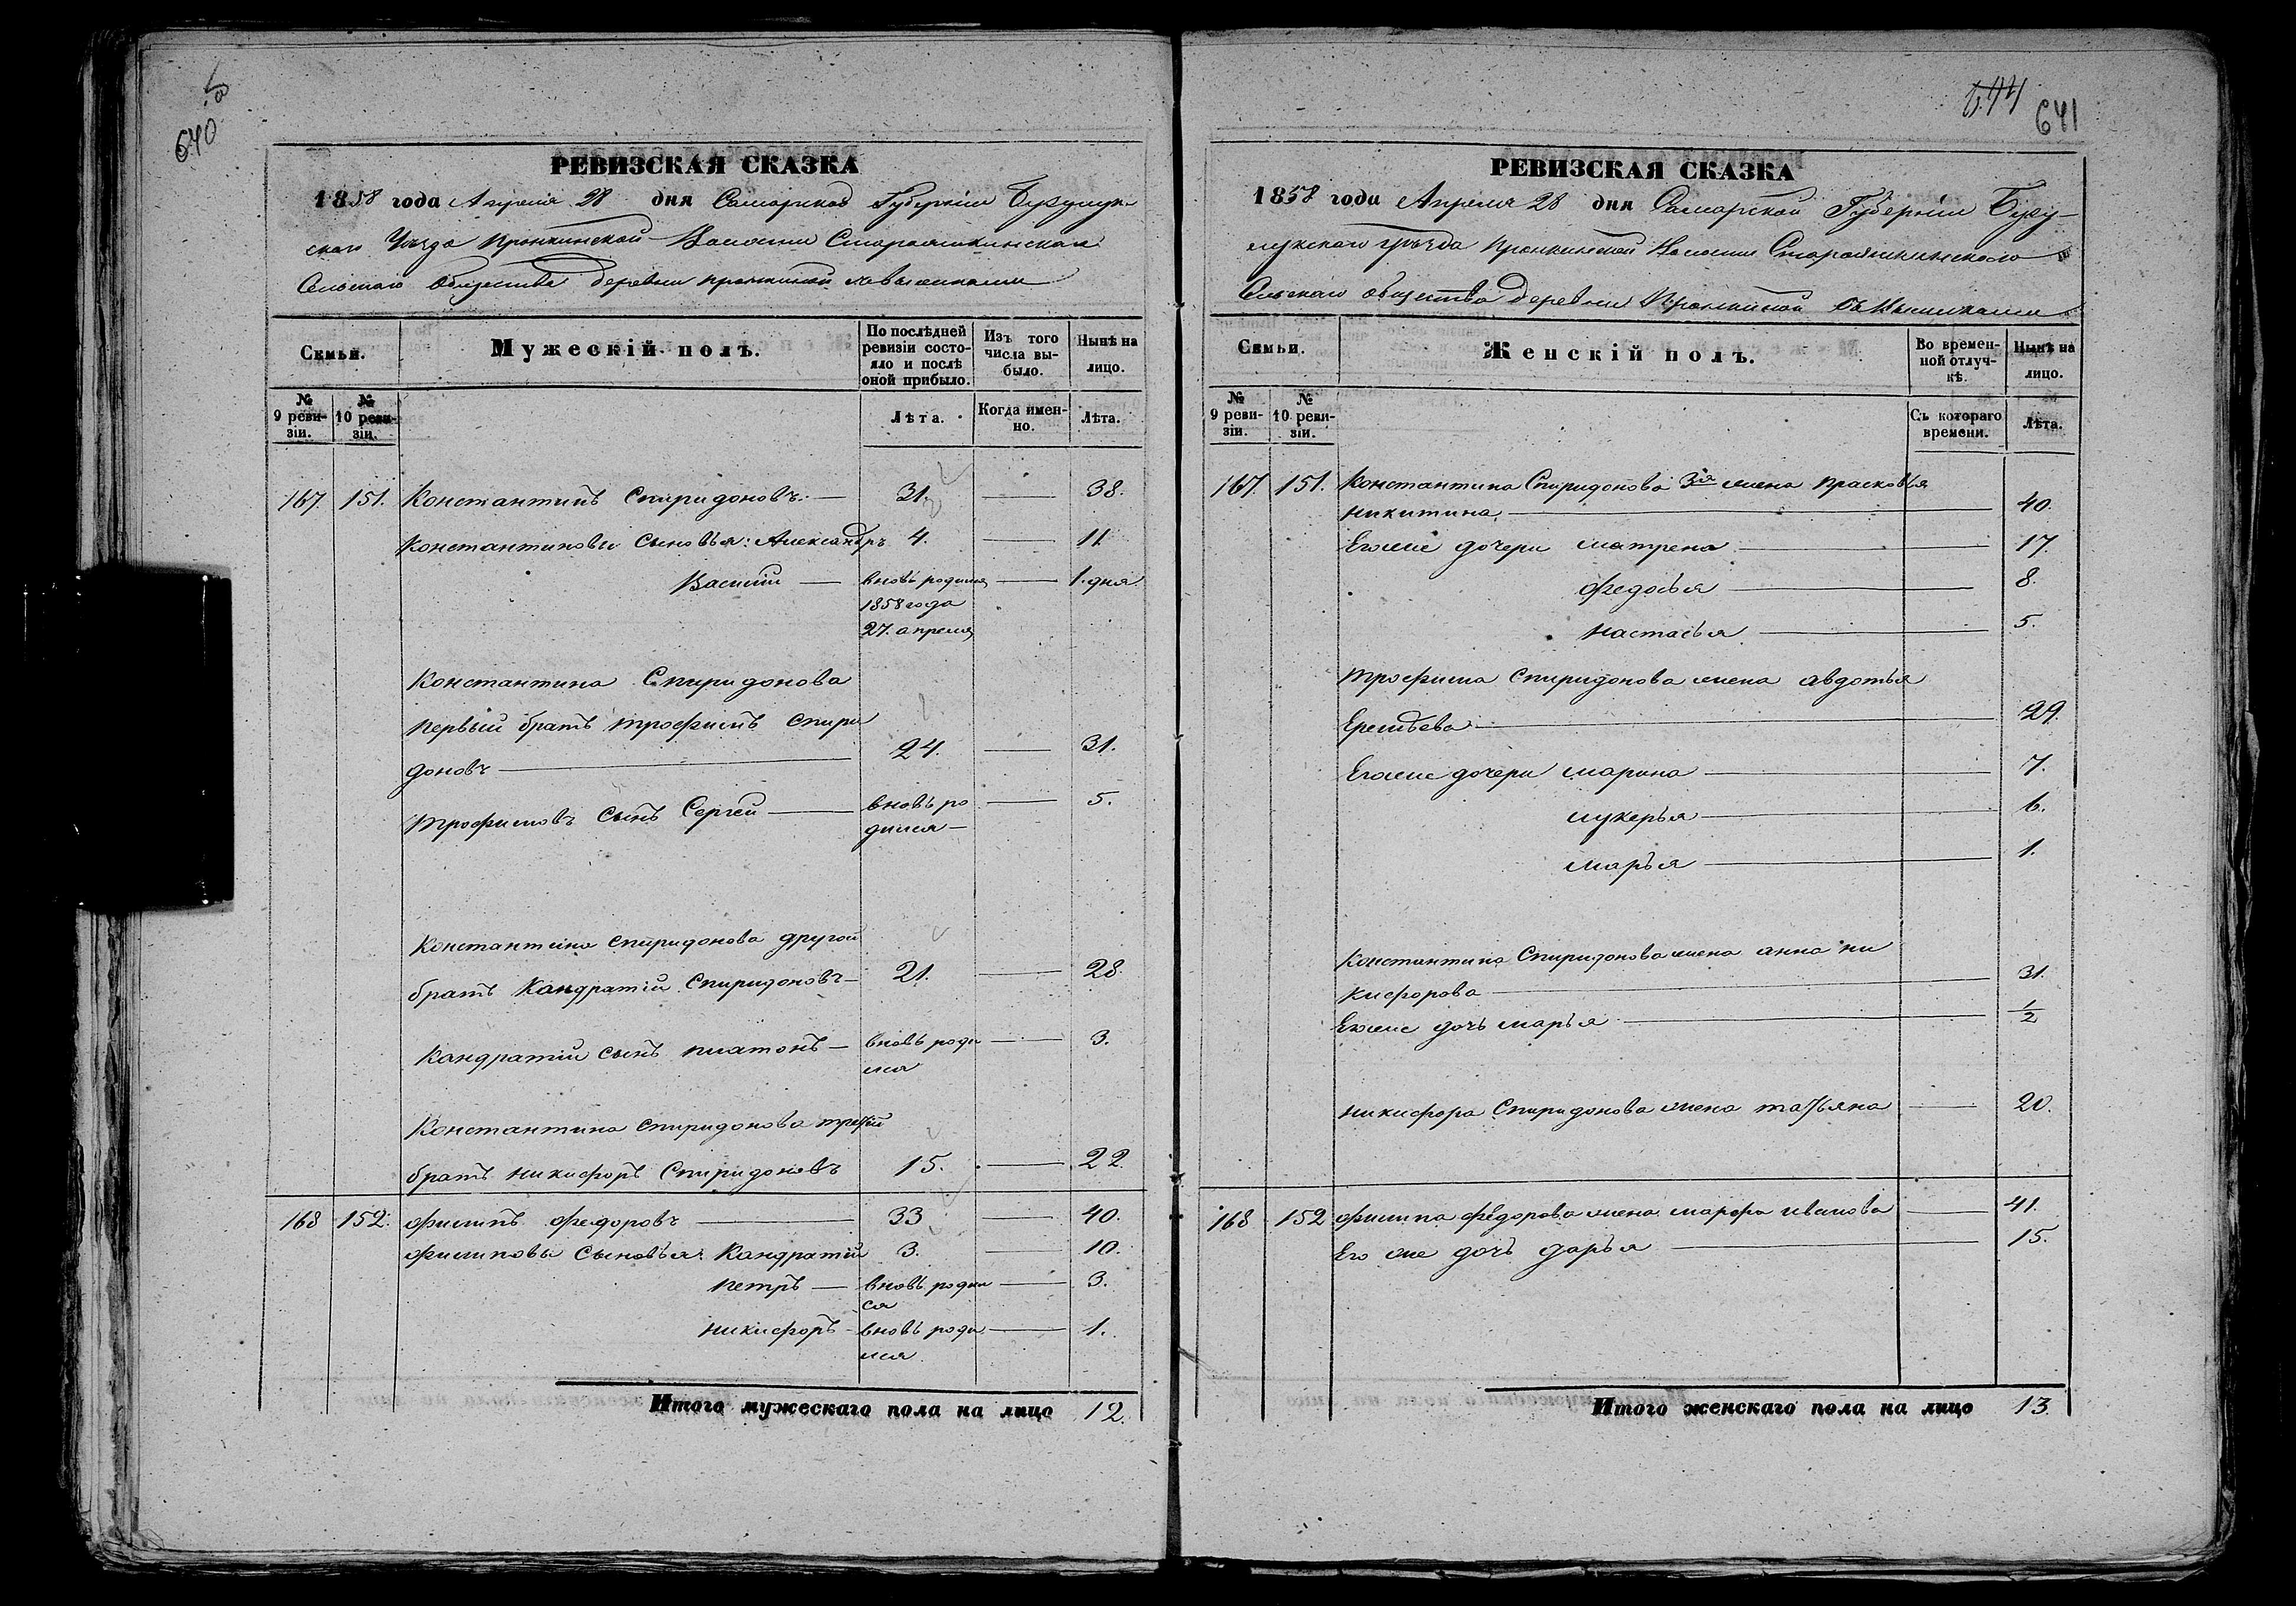 640
РЕВИЗСКАЯ СКАЗКА
1858 года Апреля 28 дня Самарской Губернiи Бузулук-
скаго Уѣзда Пронкинской Волости
Сельскаго Общества деревни Пронкиной
Семьи.
Мужескiй полъ.
По послѣдней ревизiи состо-
яло и послѣ
оной прибыло.
Изъ того
числа вы-
было.
Нынѣ на
лицо.
№ 9 реви-
зiи.
№ 10 реви-
зiи.
Лѣта.
Когда имен-
но.
Лѣта.
167. 151. Константинъ Спиридоновъ. — 31. — 38.
Константиновы сыновья: Александръ 4. — 11
Василiй — вновь родился — 1. дня
1858 года
27. апреля
Константина Спиридонова
первый братъ трофимъ Спири
доновъ — 24. — 31.
трофимовъ сынъ Сергей — вновь ро — 5.
дился —
Константина спиридонова другой
братъ Кандратiй Спиридоновъ — 21. — 28.
Кандратiй сынъ платонъ — вновь роди — 3.
лся
Константина спиридонова третiй
братъ никифоръ Спиридоновъ 15. — 22.
168 152. филипъ федоровъ — 33 — 40.
филиповы сыновья: Кандратiй 3. — 10.
петръ — вновь родил — 3.
ся
никифоръ — вновь роди — 1.
лся
Итого мужескаго пола на лицо 12.
641
РЕВИЗСКАЯ СКАЗКА
1858 года Апреля 28 дня Самарской Губернiи Бузу-
лукскаго уѣзда пронкинской Волости
Сельскаго общества деревни Пронкиной
Семьи.
Женскiй полъ.
Во времен-
ной отлуч-
кѣ.
Нынѣ на
лицо.
№ 9 реви-
зiи.
№ 10 реви-
зiи.
Съ котораго
времени.
Лѣта.
167. 151. Константина Спиридонова 3я жена прасковья
никитина, — 40.
Егоже дочери матрена — 17.
федосья — 8.
настасья — 5.
трофима спиридонова жена авдотья
— 29.
Егоже дочери марина — 7.
лукерья — 6.
марья — 1.
Константина Спиридонова жена анна ни
кифорова — 31.
Егоже дочь марья — 1/2
никифора Спиридонова жена татьяна — 20.
168 152 филипа федорова жена марфа иванова — 41.
Его же дочь дарья — 15.
Итого женскаго пола на лицо 13.